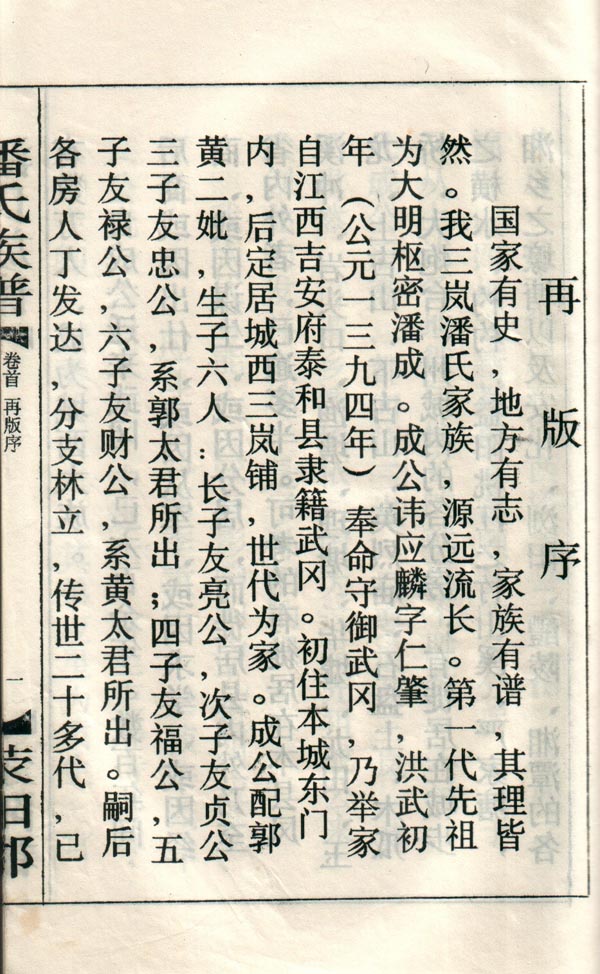 再版序
国家有史，地方有志，家族有谱，其理皆
然。我三岚潘氏家族，源远流长。第一代先祖
为大明枢密潘成。成公讳应麟字仁肇，洪武初
年（公元一三九四年）奉命守御武冈，乃举家
自江西吉安府泰和县隶籍武冈。初住本城东门
内，后定居城西三岚铺，世代为家。成公配郭
黄二妣，生子六人：长子友亮公，次子友贞公
三子友忠公，系郭太君所出；四子友福公，五
子友禄公，六子友财公，系黄太君所出。嗣后
各房人丁发达，分支林立，传世二十多代，已
潘氏族谱
卷首 再版序
一